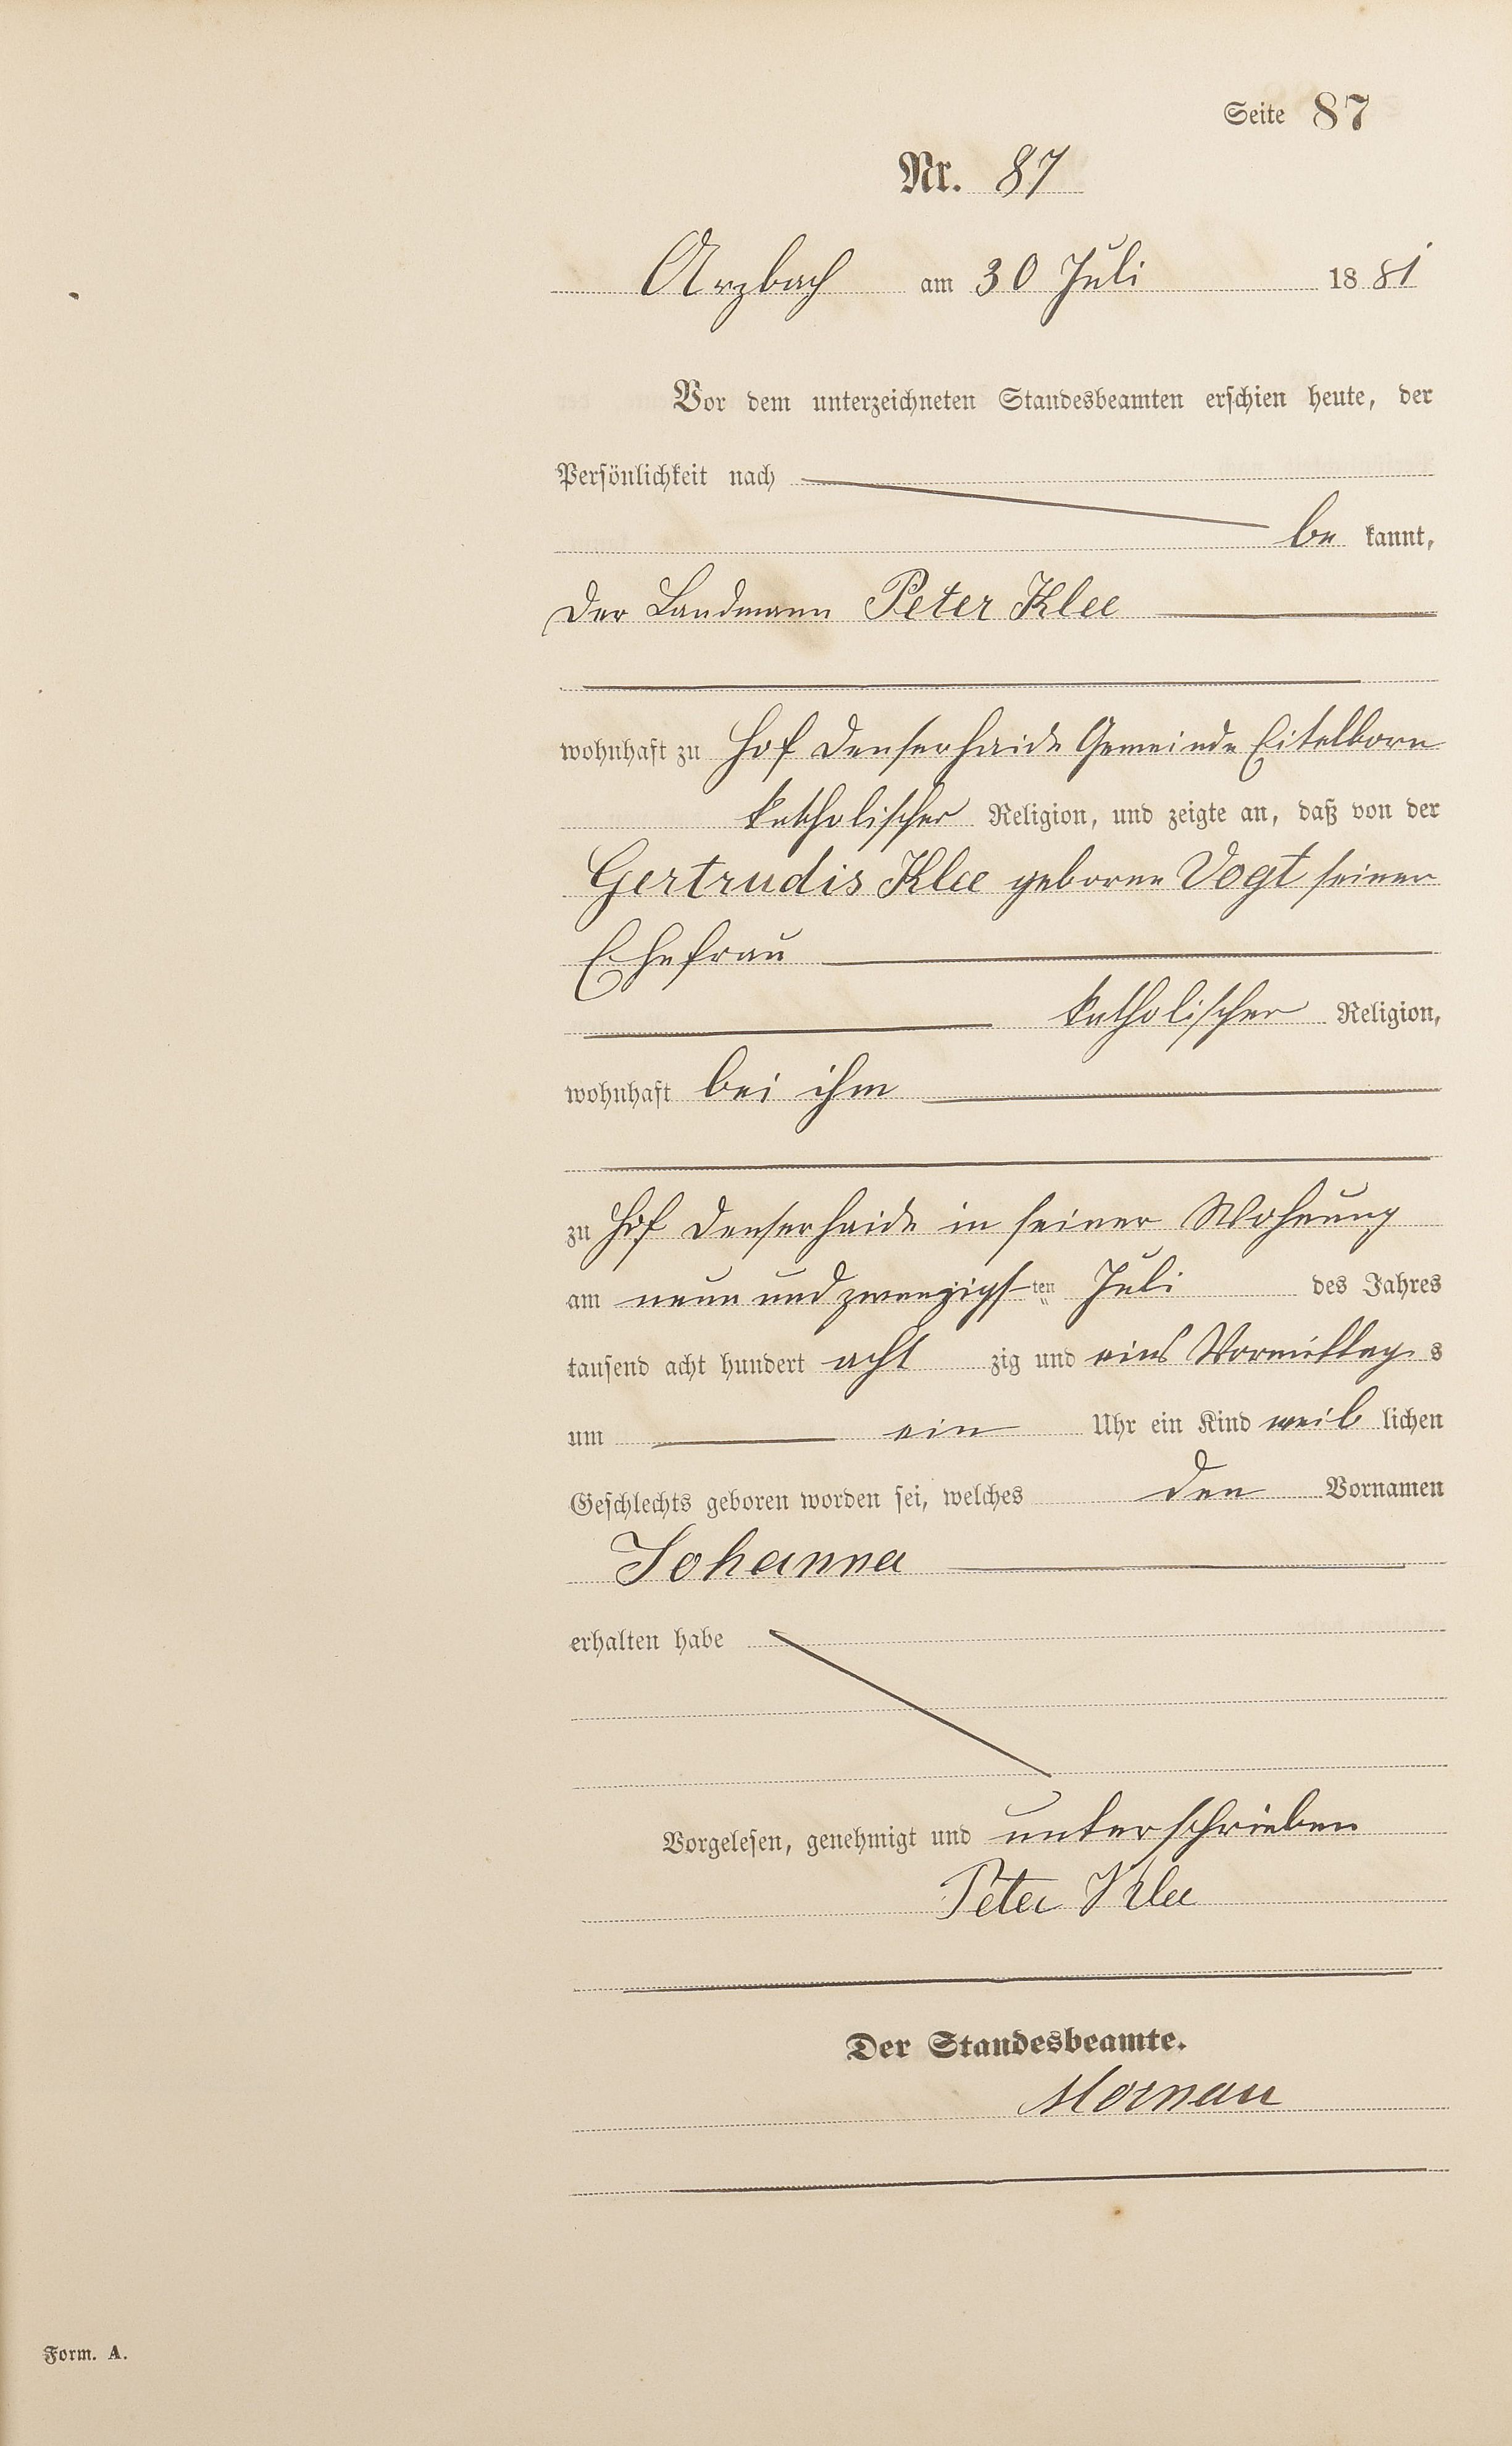 Seite 87
Nr. 87
Arzbach am 30 Juli 1881
Vor dem unterzeichneten Standesbeamten erschien heute, der
Persönlichkeit nach
be kannt,
der Landmann Peter Klee
wohnhaft zu Hof Denserhaide Gemeinde Eitelborn
katholischer Religion, und zeigte an, daß von der
Gertrudis Klee geborne Vogt seiner
Ehefrau
katholischer Religion,
wohnhaft bei ihm
zu Hof Denserhaide in seiner Wohnung
am neun und zwanzigsten Juli des Jahres
tausend acht hundert acht zig und eins Vormittags
um ein Uhr ein Kind weiblichen
Geschlechts geboren worden sei, welches den Vornamen
Johanna
erhalten habe
Vorgelesen, genehmigt und unterschrieben
Peter Klee
Der Standesbeamte.
Form. A.